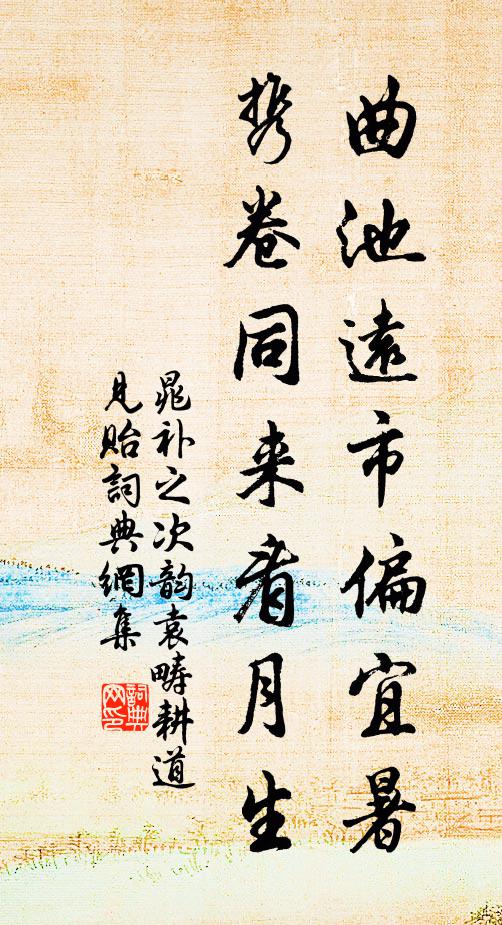 曲池遠市偏宜暑
携卷同来看月生
晁补之次韵袁畴耕道
見貽詞典網集
詞典
网印